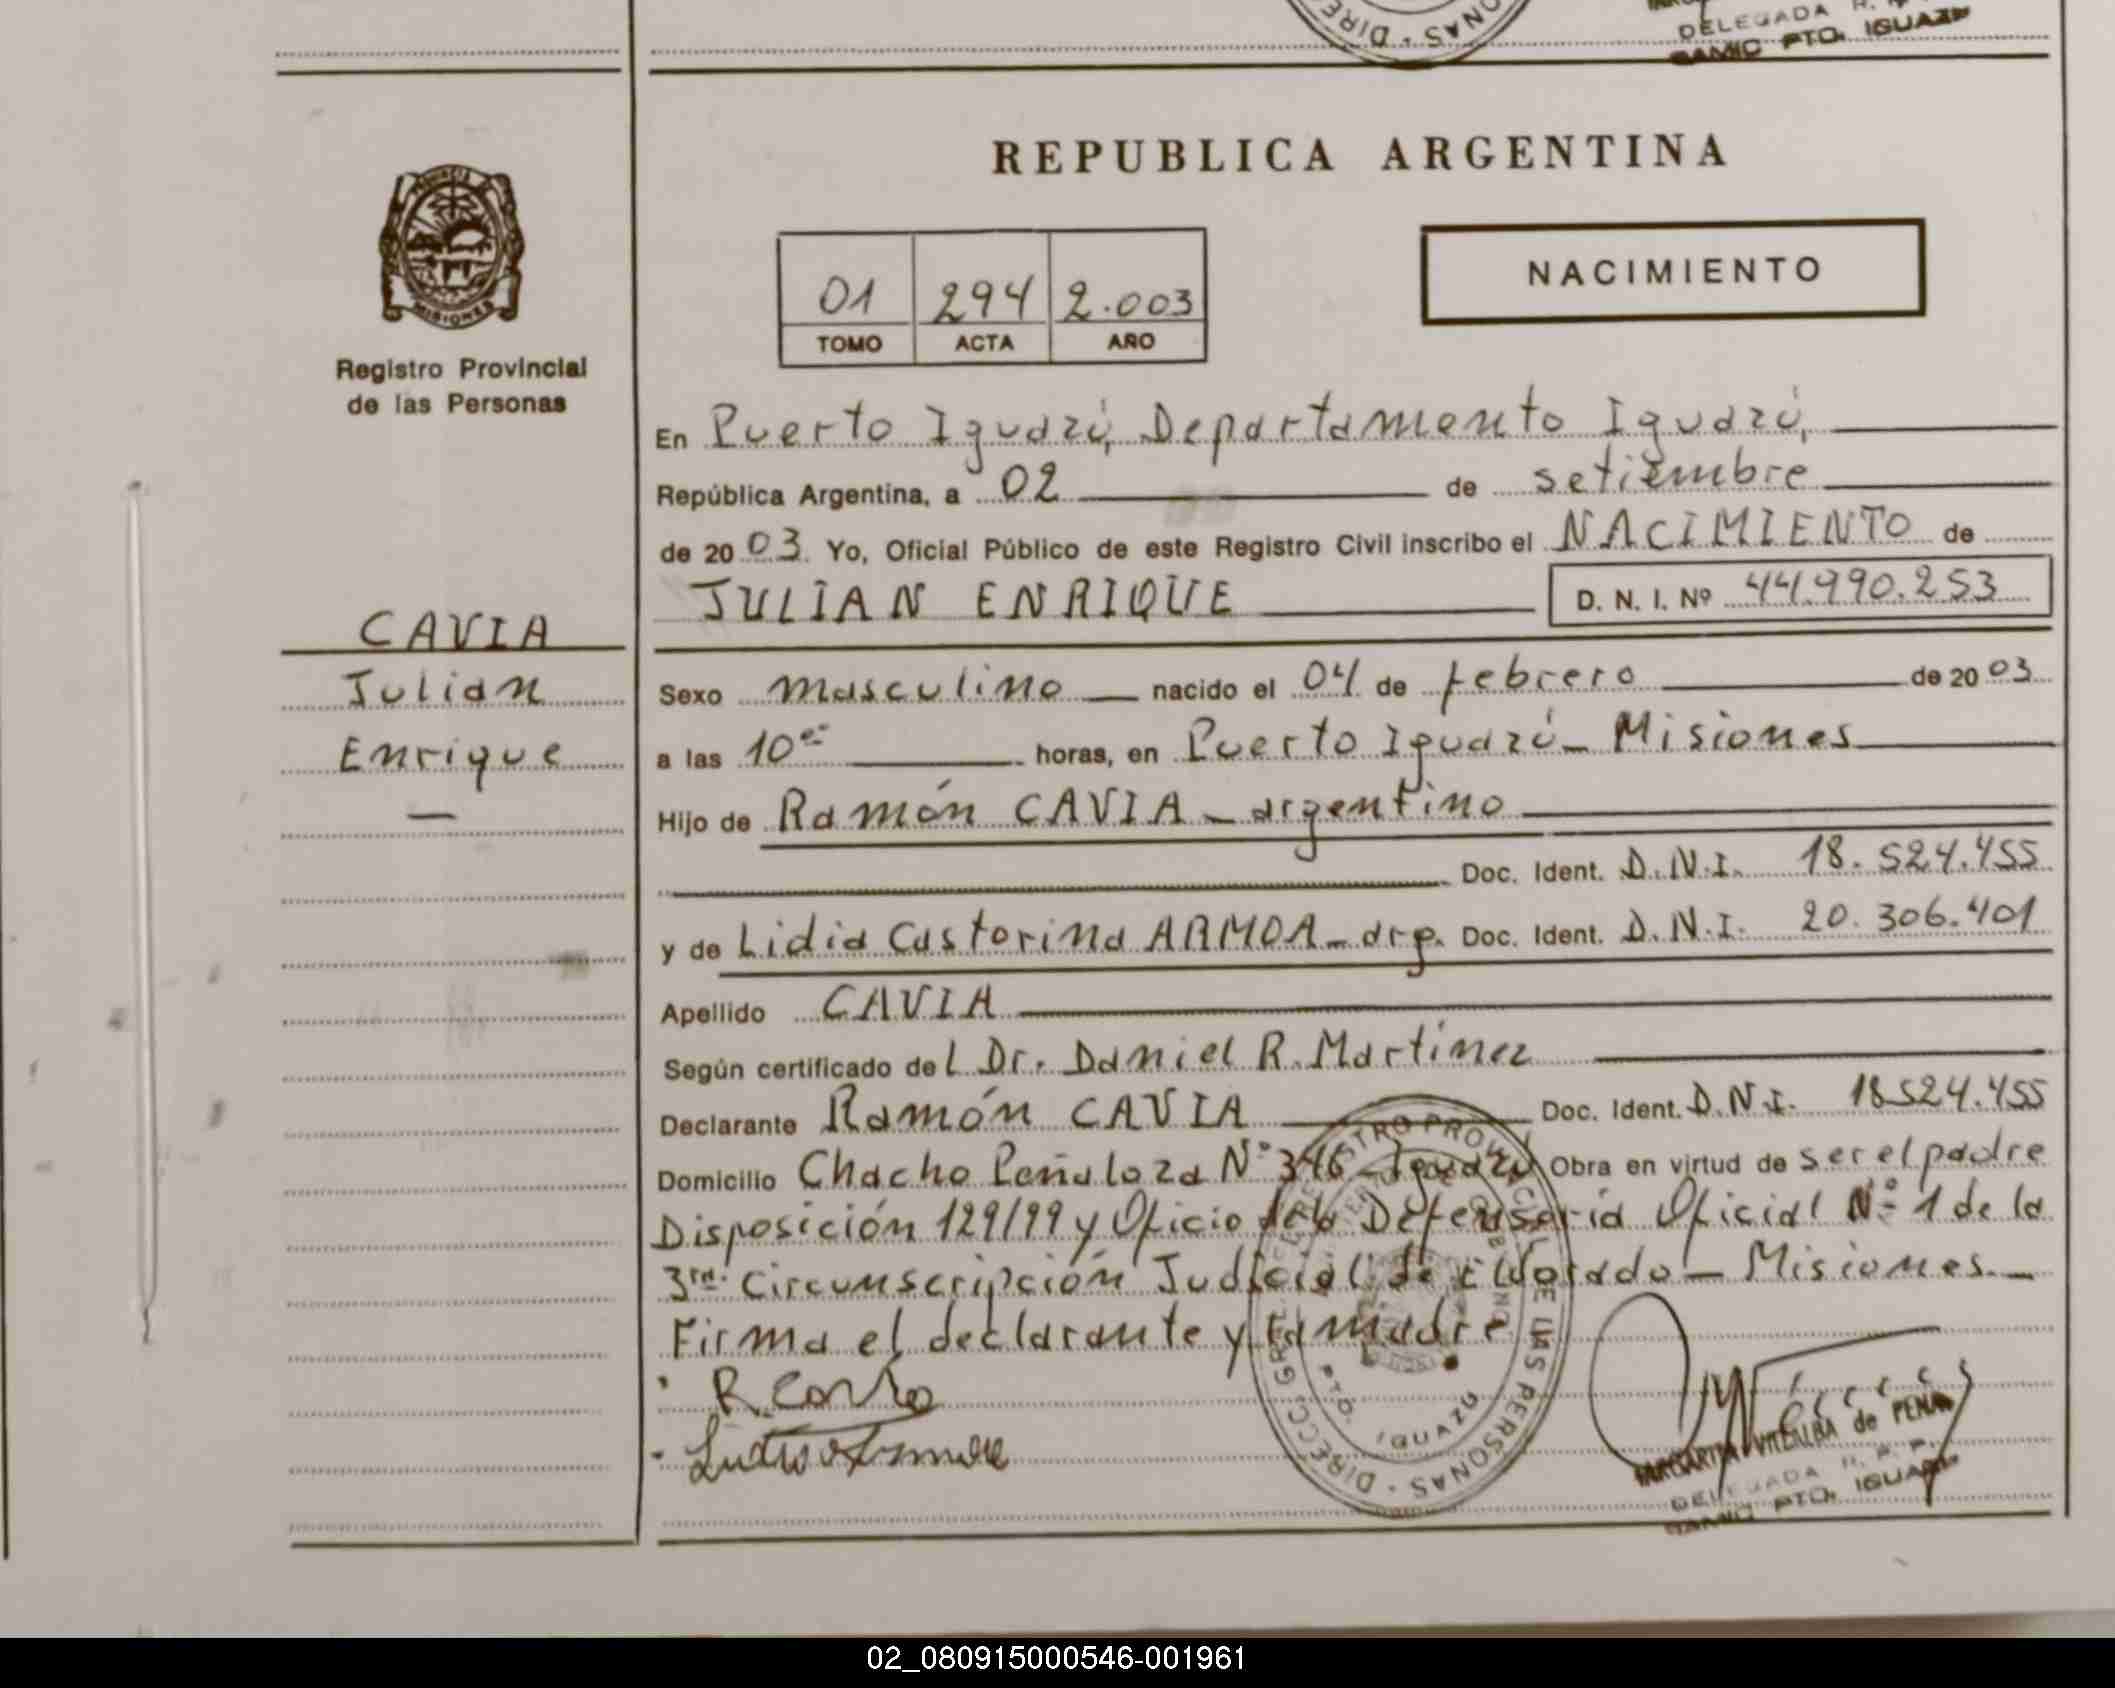 DIRE
ONAS
DELEGADA R.
SAMIC PTO. IGUAZU
PROVINCIA DE
MISIONES
Registro Provincial
de las Personas
CAVIA
Julian
Enrique
—
REPUBLICA ARGENTINA
01 294 2.003
TOMO ACTA AÑO
NACIMIENTO
En Puerto Iguazú, Departamento Iguazú,
República Argentina, a 02 de setiembre
de 2003. Yo, Oficial Público de este Registro Civil inscribo el NACIMIENTO de
JULIAN ENRIQUE D. N. I. Nº 44.990.253
Sexo masculino nacido el 04 de febrero de 2003
a las 10 horas, en Puerto Iguazú - Misiones
Hijo de Ramón CAVIA - argentino
Doc. Ident. D.N.I. 18.524.455
y de Lidia Castorina ARMOA - arg. Doc. Ident. D.N.I. 20.306.401
Apellido CAVIA
Según certificado del Dr. Daniel R. Martinez
Declarante Ramón CAVIA Doc. Ident. D.N.I. 18524.455
Domicilio Chacho Peñaloza Nº 346 - Iguazú Obra en virtud de ser el padre
Disposición 129/99 y Oficio de la Defensoría Oficial Nº 1 de la
3ra. Circunscripción Judicial de Eldorado - Misiones.-
Firma el declarante y la madre
REGISTRO PROVINCIAL DE LAS PERSONAS · DIRECC. GRAL.
PTO. IGUAZU
MARGARITA VILLALBA de PENA
DELEGADA R. P. P.
SAMIC PTO. IGUAZU
02_080915000546-001961